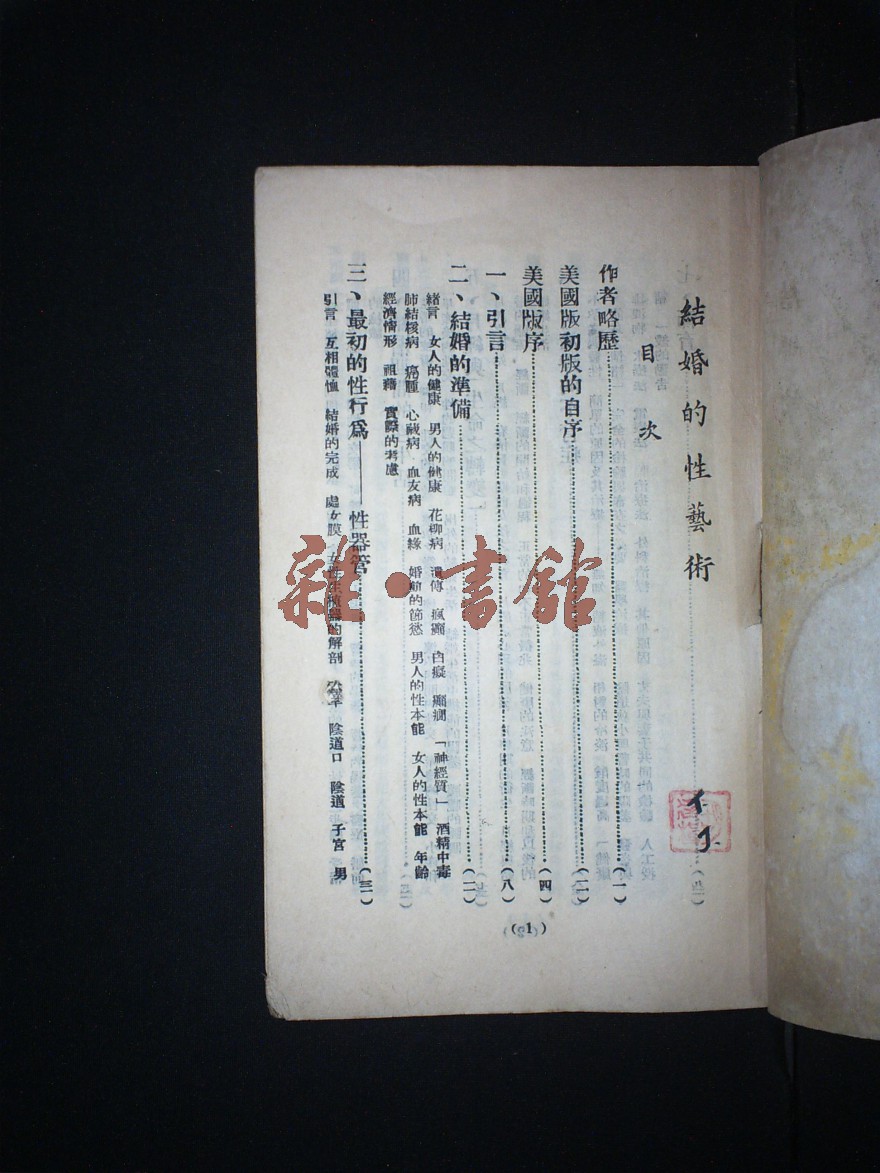 結婚的性藝術
目次
作者略歷……(一)
美國版初版的自序……(二)
美國版序……(四)
一、引言……(八)
二、結婚的準備……(二一)
緒言 女人的健康 男人的健康 花柳病 遺傳 瘋癲 白癡 癲癇 「神經質」 酒精中毒
肺結核病 癌腫 心臟病 血友病 血緣 婚前的節慾 男人的性本能 女人的性本能 年齡
經濟情形 祖籍 實際的考慮
三、最初的性行爲——性器管……(三一)
引言 互相體恤 結婚的完成 處女膜 女性生殖器的解剖 陰道口 陰道 子宮 男
(1)
雜·書館